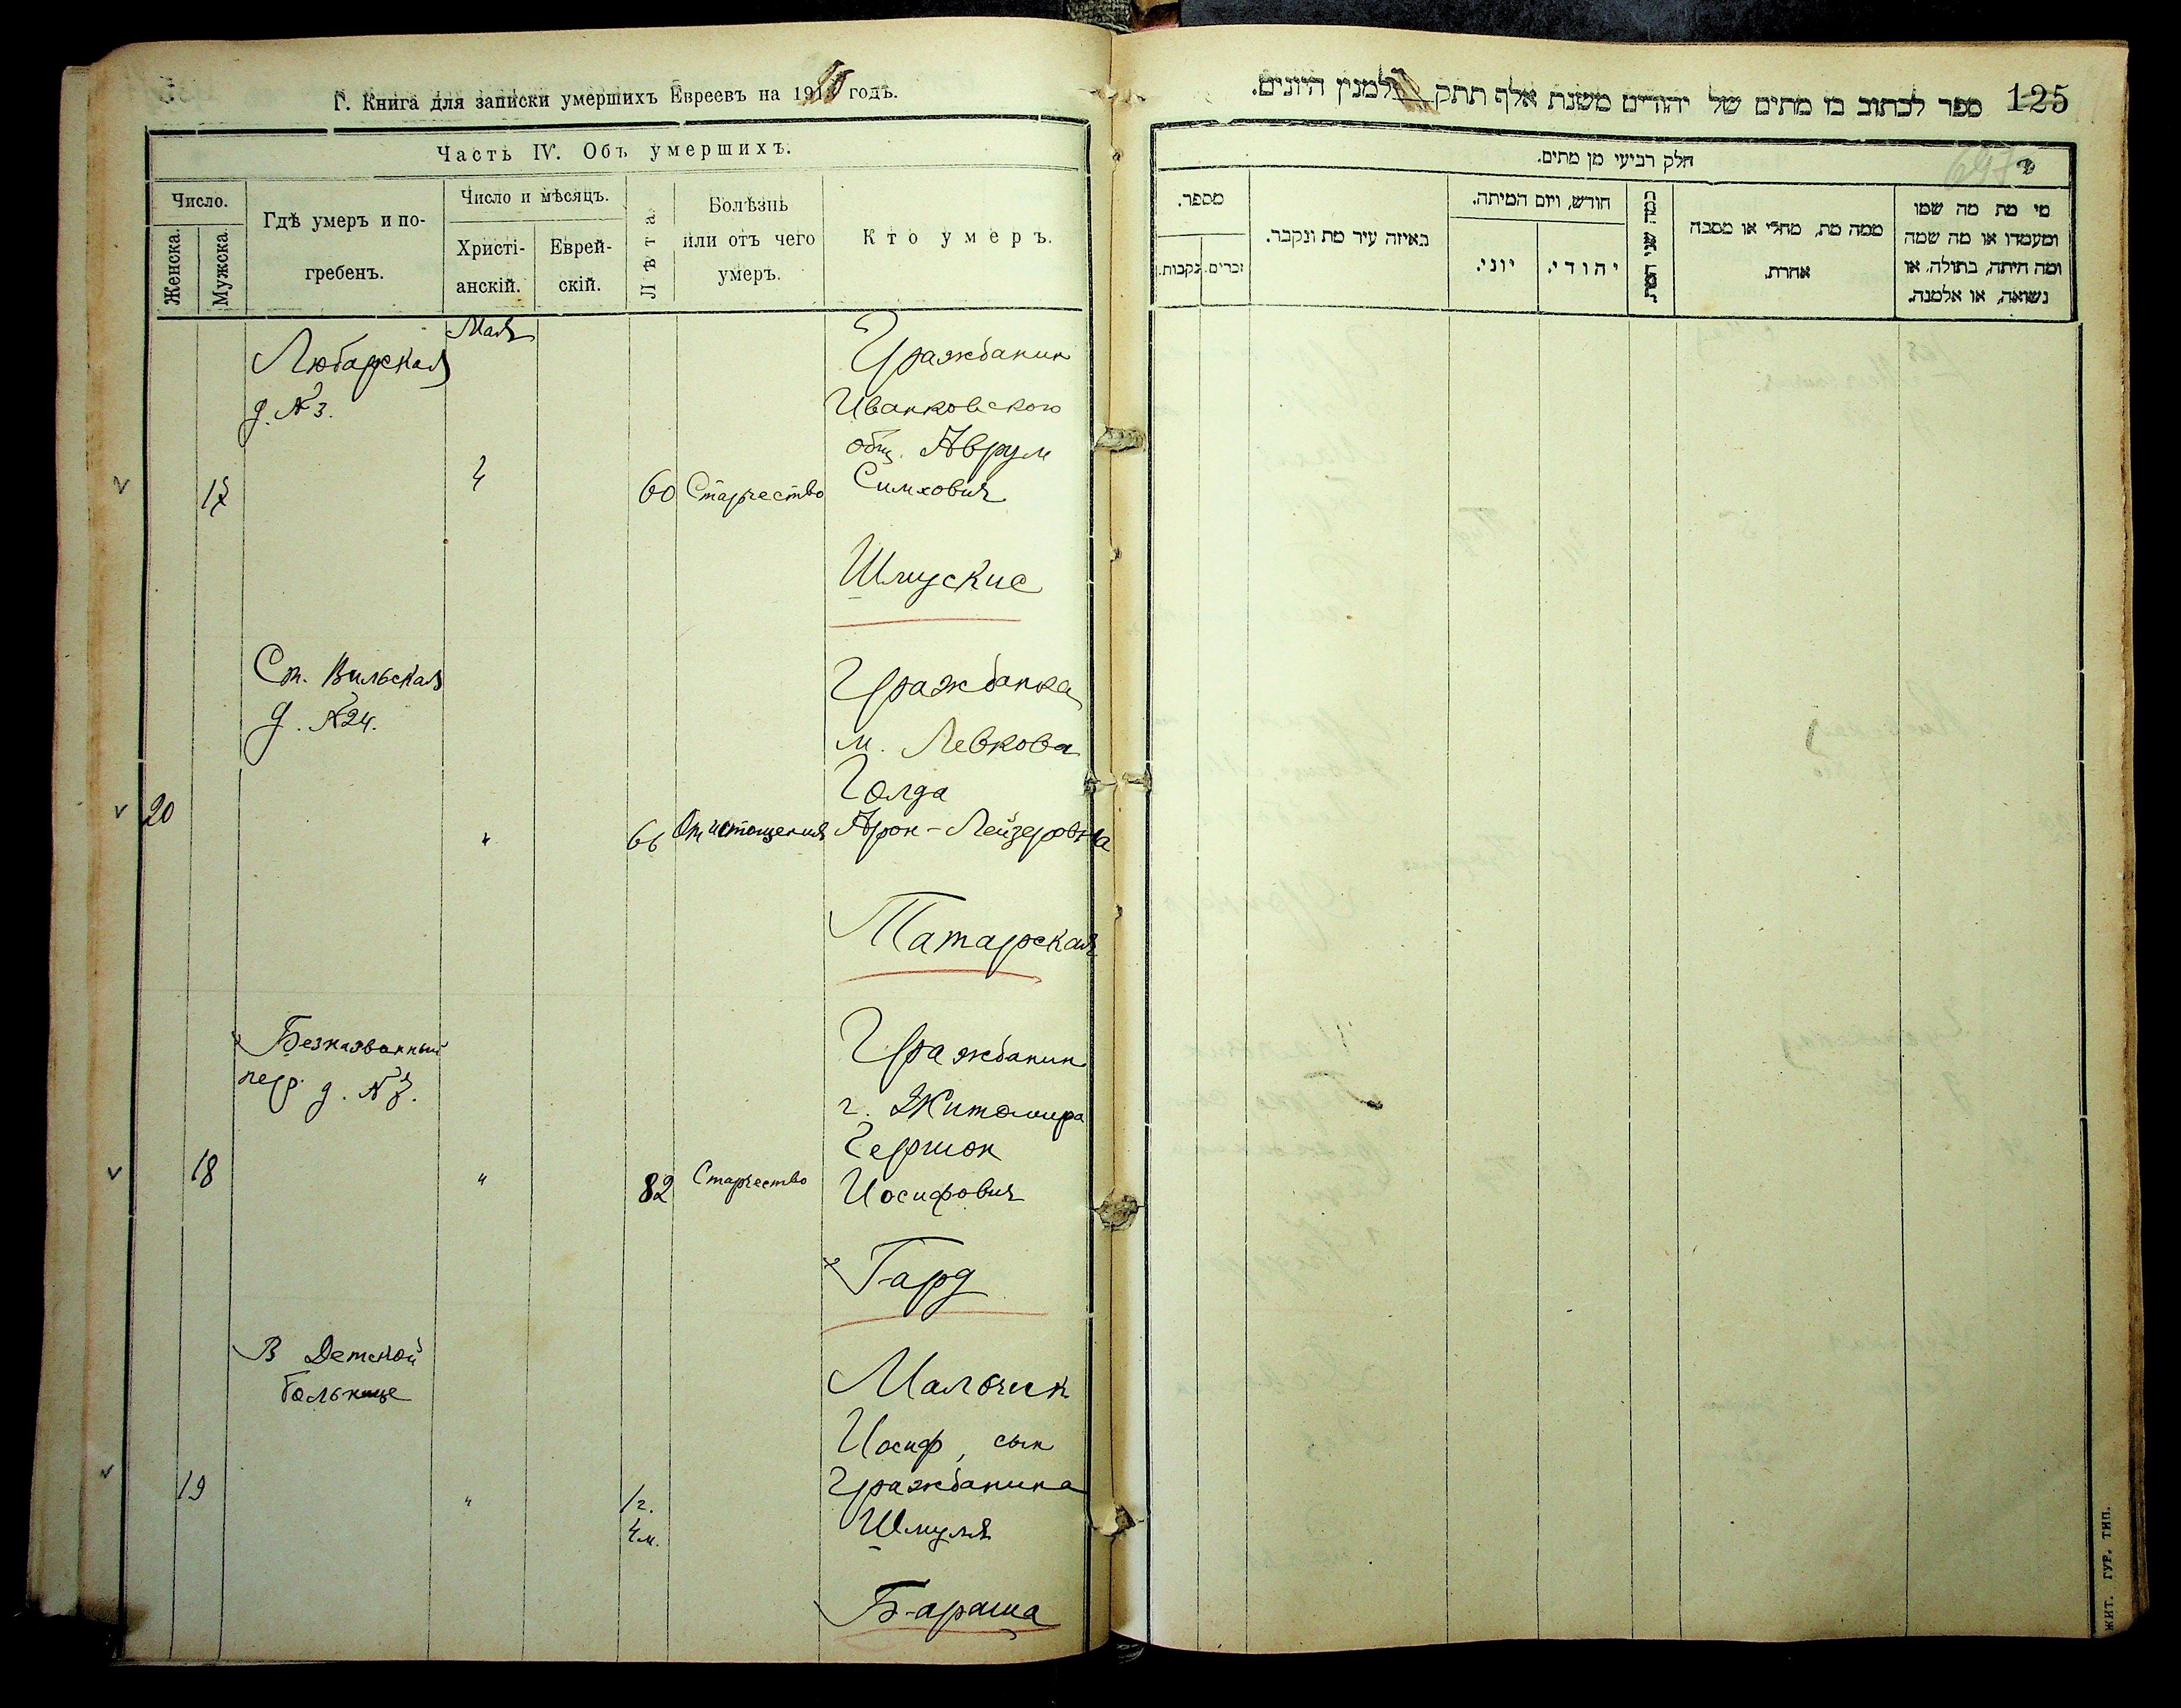 Г. Книга для записки умершихъ Евреевъ на 19 годъ.
Часть IV. Объ умершихъ.
Число.
Женска.
Мужска.
Гдѣ умеръ и по-
гребенъ.
Число и мѣсяцъ.
Христі-
анскій.
Еврей-
скій.
Лѣта.
Болѣзнь
или отъ чего
умеръ.
Кто умеръ.
Мая
Любарская
д. №3.
17
4
60
Старчество
Гражданин
Иванковского
общ. Аврум
Симхович
Шмускис
Ст. Вильская
д. №24.
20
"
66
От истощения
Гражданка
м. Левкова
Голда
Арон-Лейзеровна
Татарская
Безназванный
пер. д. №
18
"
82
Старчество
Гражданин
г. Житомира
Гершон
Иосифович
Гард
В Детской
больнице
19
"
1г.
4м.
Мальчик
Иосиф, сын
Гражданина
Шмуля
Бараша
ספר לכתוב בו מתים של יהודים משנת אלף תתק למנין היונים.
125
חלק רביעי מן מתים.
מספר.
נקבות.
זכרים.
באיזה עיר מת ונקבר.
חודש, ויום המיתה.
יוני.
יהודי.
ממה מת, מחלי או מסבה
אחרת.
מי מת מה שמו
ומעמדו או מה שמה
ומה היתה, בתולה, או
נשואה, או אלמנה.
ЖИТ. ГУБ. ТИП.